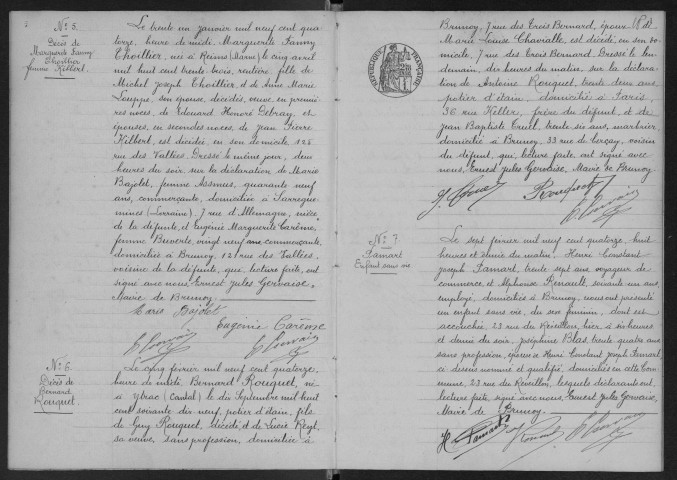 No 5.
Décès de
Marguerite Fanny
Thoillier
femme Hilbert.
Le trente un janvier mil neuf cent qua
torze, heure de midi, Marguerite Fanny
Thoillier, née à Reims (Marne) le cinq avril
mil huit cent trente-trois, rentière, fille de
Michel Joseph Thoillier, et de Anne Marie
son épouse, décédés, veuve en premiè
res noces, de Edouard Honoré Debray, et
épouse, en secondes noces, de Jean Pierre
Hilbert, est décidée, en son domicile, 125
rue des Vallées. Dressé le même jour, deux
heures du soir, sur la déclaration de Marie
Bajolet, femme quarante neuf
ans, commerçante, domiciliée à Sarregue
mines (Lorraine), 7 rue d'Allemagne, nièce
de la défunte, et Eugénie Marguerite Carême,
femme vingt neuf ans, commerçante,
domiciliée à Brunoy, 121 rue des Vallées,
voisine de la défunte, qui, lecture faite, ont
signé avec nous, Ernest Jules Gervaise,
Maire de Brunoy.
Marie Bajolet
Eugénie Carême
No 6.
Décès de
Bernard
Rouquet.
Le cinq février mil neuf cent quatorze,
heure de midi, Bernard Rouquet, né
à Ytrac (Cantal) le dix Septembre mil huit
cent soixante dix neuf, potier d'étain, fils
de Guy Rouquet, décédé, et de Lucie
sa veuve, sans profession, domiciliée à
Brunoy, 7 rue des Trois Bernard, époux de
Marie Louise est décédé, en son do
micile, 7 rue des Trois Bernard. Dressé le len
demain, dix heures du matin, sur la déclara
tion de Antoine Rouquet, trente deux ans,
potier d'étain, domicilié à Paris,
36 rue Keller, frère du défunt, et de
Jean Baptiste trente six ans, marbrier,
domicilié à Brunoy, 33 rue de Cerçay, voisin
du défunt, qui, lecture faite, ont signé avec
nous, Ernest Jules Gervaise, Maire de Brunoy.
RÉPUBLIQUE FRANÇAISE
Rouquet
No 7.
Famart
Enfant sans vie
Le sept février mil neuf cent quatorze, huit
heures et demie du matin, Henri Constant
Joseph Famart, trente sept ans, voyageur de
commerce et Alphonse Renault, soixante un ans,
employé, domiciliés à Brunoy, nous ont présenté
un enfant sans vie, du sexe féminin, dont est
accouchée, 23 rue du Réveillon, hier, à six heures
et demie du soir, Joséphine Blas, trente quatre ans,
sans profession, épouse de Henri Constant Joseph Famart,
ci dessus nommé et qualifié, domiciliés en cette com
mune, 23 rue du Réveillon, lesquels déclarants ont,
lecture faite, signé avec nous, Ernest Jules Gervaise,
Maire de Brunoy.
H. Famart